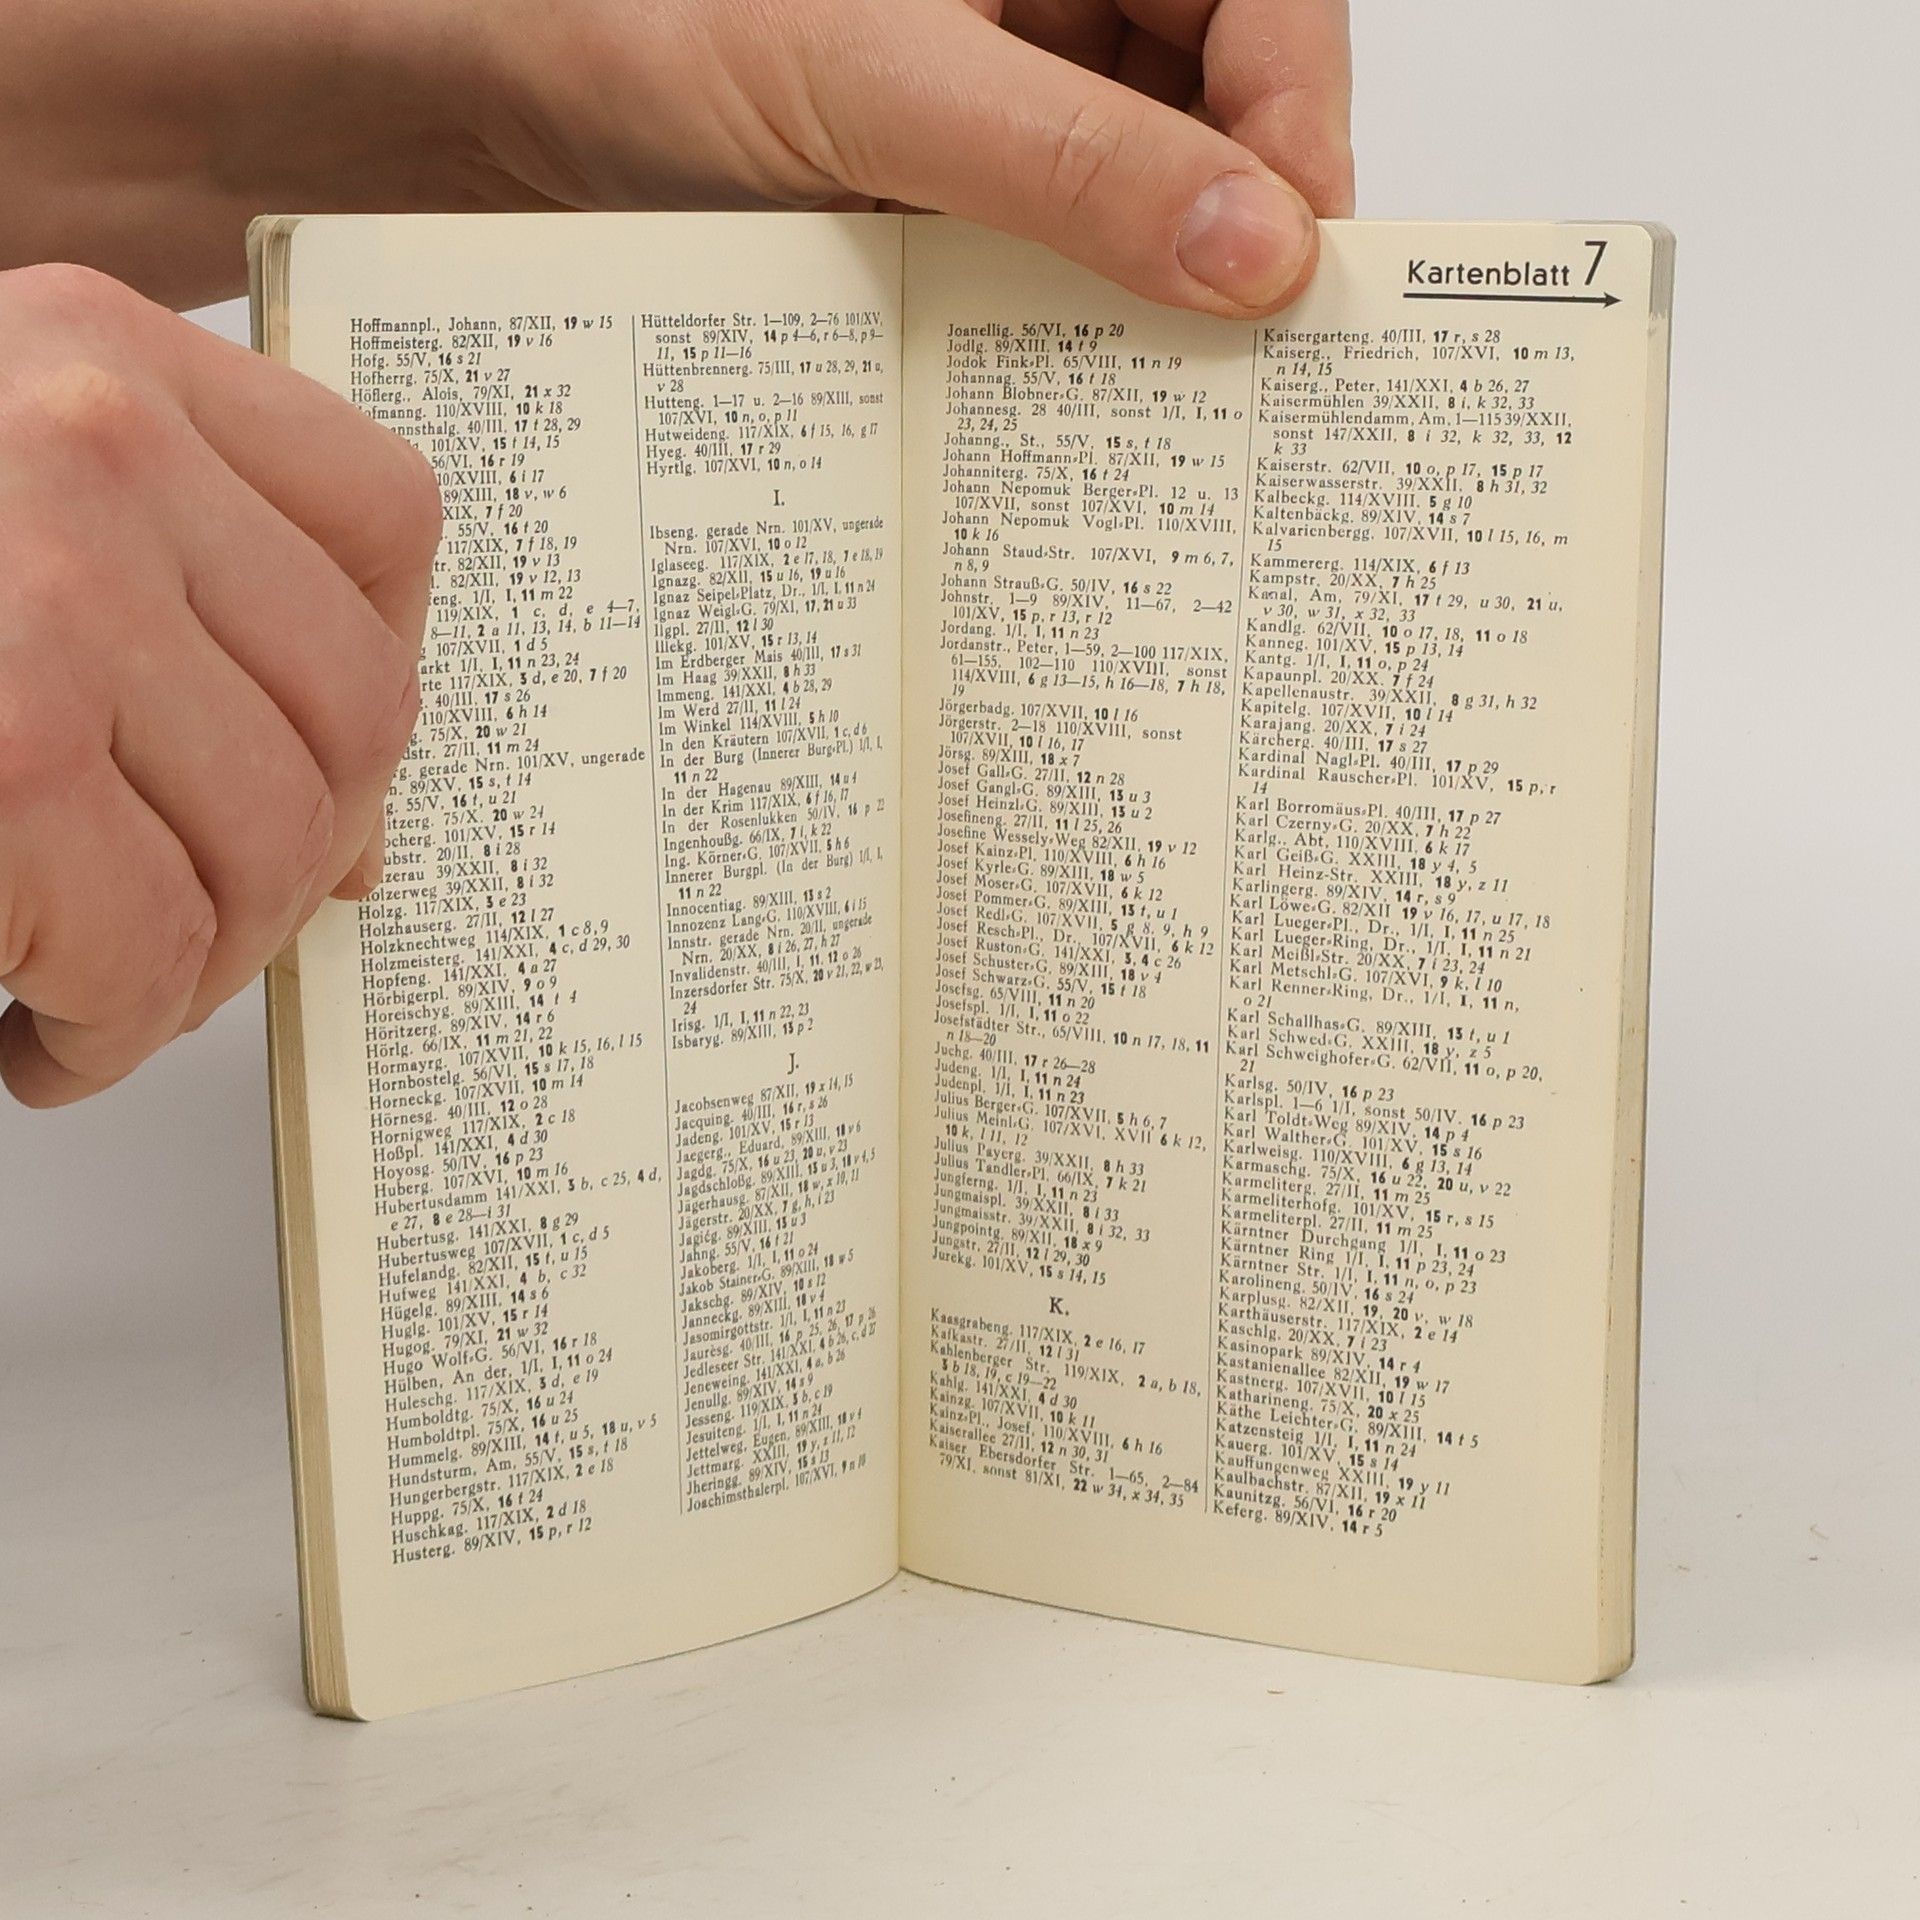 Hoffmannpl., Johann, 87/XII, 19 w 15
Hoffmeisterg. 82/XII, 19 v 16
Hofg. 55/V, 16 s 21
Hofherrg. 75/X, 21 v 27
Höflerg., Alois, 79/XI, 21 x 32
ofmanng. 110/XVIII, 10 k 18
annsthalg. 40/III, 17 t 28, 29
101/XV, 15 t 14, 15
56/VI, 16 r 19
10/XVIII, 6 i 17
89/XIII, 18 v, w 6
XIX, 7 f 20
55/V, 16 t 20
117/XIX, 7 f 18, 19
tr. 82/XII, 19 v 13
82/XII, 19 v 12, 13
eng. 1/I, I, 11 m 22
119/XIX, 1 c, d, e 4—7,
8—11, 2 a 11, 13, 14, b 11—14
107/XVII, 1 d 5
arkt 1/I, I, 11 n 23, 24
rte 117/XIX, 3 d, e 20, 7 f 20
40/III, 17 s 26
110/XVIII, 6 h 14
g. 75/X, 20 w 21
dstr. 27/II, 11 m 24
rg. gerade Nrn. 101/XV, ungerade
n. 89/XV, 15 s, t 14
g. 55/V, 16 t, u 21
itzerg. 75/X, 20 w 24
ocherg. 101/XV, 15 r 14
ubstr. 20/II, 8 i 28
lzerau 39/XXII, 8 i 32
Holzerweg 39/XXII, 8 i 32
Holzg. 117/XIX, 3 e 23
Holzhauserg. 27/II, 12 l 27
Holzknechtweg 114/XIX, 1 c 8, 9
Holzmeisterg. 141/XXI, 4 c, d 29, 30
Hopfeng. 141/XXI, 4 a 27
Hörbigerpl. 89/XIV, 9 o 9
Horeischyg. 89/XIII, 14 t 4
Höritzerg. 89/XIV, 14 r 6
Hörlg. 66/IX, 11 m 21, 22
Hormayrg. 107/XVII, 10 k 15, 16, l 15
Hornbostelg. 56/VI, 15 s 17, 18
Horneckg. 107/XVII, 10 m 14
Hörnesg. 40/III, 12 o 28
Hornigweg 117/XIX, 2 c 18
Hoßpl. 141/XXI, 4 d 30
Hoyosg. 50/IV, 16 p 23
Huberg. 107/XVI, 10 m 16
Hubertusdamm 141/XXI, 3 b, c 25, 4 d,
e 27, 8 e 28—i 31
Hubertusg. 141/XXI, 8 g 29
Hubertusweg 107/XVII, 1 c, d 5
Hufelandg. 82/XII, 15 t, u 15
Hufweg 141/XXI, 4 b, c 32
Hügelg. 89/XIII, 14 s 6
Huglg. 101/XV, 15 r 14
Hugog. 79/XI, 21 w 32
Hugo Wolf-G. 56/VI, 16 r 18
Hülben, An der, 1/I, I, 11 o 24
Huleschg. 117/XIX, 3 d, e 19
Humboldtg. 75/X, 16 u 24
Humboldtpl. 75/X, 16 u 25
Hummelg. 89/XIII, 14 t, u 5, 18 u, v 5
Hundsturm, Am, 55/V, 15 s, t 18
Hungerbergstr. 117/XIX, 2 e 18
Huppg. 75/X, 16 t 24
Huschkag. 117/XIX, 2 d 18
Husterg. 89/XIV, 15 p, r 12
Hütteldorfer Str. 1—109, 2—76 101/XV,
sonst 89/XIV, 14 p 4—6, r 6—8, p 9—
11, 15 p 11—16
Hüttenbrennerg. 75/III, 17 u 28, 29, 21 u,
v 28
Hutteng. 1—17 u. 2—16 89/XIII, sonst
107/XVI, 10 n, o, p 11
Hutweideng. 117/XIX, 6 f 15, 16, g 17
Hyeg. 40/III, 17 r 29
Hyrtlg. 107/XVI, 10 n, o 14
I.
Ibseng. gerade Nrn. 101/XV, ungerade
Nrn. 107/XVI, 10 o 12
Iglaseeg. 117/XIX, 2 e 17, 18, 7 e 18, 19
Ignazg. 82/XII, 15 u 16, 19 u 16
Ignaz Seipel-Platz, Dr., 1/I, I, 11 n 24
Ignaz Weigl-G. 79/XI, 17, 21 u 33
Ilgpl. 27/II, 12 l 30
Illekg. 101/XV, 15 r 13, 14
Im Erdberger Mais 40/III, 17 s 31
Im Haag 39/XXII, 8 h 33
Immeng. 141/XXI, 4 b 28, 29
Im Werd 27/II, 11 l 24
Im Winkel 114/XVIII, 5 h 10
In den Kräutern 107/XVII, 1 c, d 6
In der Burg (Innerer Burg-Pl.) 1/I, I,
11 n 22
In der Hagenau 89/XIII, 14 u 4
In der Krim 117/XIX, 6 f 16, 17
In der Rosenlukken 50/IV, 16 p 23
Ingenhoußg. 66/IX, 7 i, k 22
Ing. Körner-G. 107/XVII, 5 h 6
Innerer Burgpl. (In der Burg) 1/I, I,
11 n 22
Innocentiag. 89/XIII, 13 s 2
Innozenz Lang-G. 110/XVIII, 6 i 15
Innstr. gerade Nrn. 20/II, ungerade
Nrn. 20/XX, 8 i 26, 27, h 27
Invalidenstr. 40/III, I, 11, 12 o 26
Inzersdorfer Str. 75/X, 20 v 21, 22, w 23,
24
Irisg. 1/I, I, 11 n 22, 23
Isbaryg. 89/XIII, 13 p 2
J.
Jacobsenweg 87/XII, 19 x 14, 15
Jacquing. 40/III, 16 r, s 26
Jadeng. 101/XV, 15 r 13
Jaegerg., Eduard, 89/XIII, 18 v 6
Jagdg. 75/X, 16 u 23, 20 u, v 23
Jagdschloßg. 89/XIII, 13 u 3, 18 v 4, 5
Jägerhausg. 87/XII, 18 w, x 10, 11
Jägerstr. 20/XX, 7 g, h, i 23
Jagićg. 89/XIII, 13 u 3
Jahng. 55/V, 16 t 21
Jakoberg. 1/I, I, 11 o 24
Jakob Stainer-G. 89/XIII, 18 w 5
Jakschg. 89/XIV, 10 s 12
Janneckg. 89/XIII, 18 v 4
Jasomirgottstr. 1/I, I, 11 n 23
Jaurèsg. 40/III, 16 p 25, 26, 17 p 26
Jedleseer Str. 141/XXI, 4 b 26, c, d 27
Jeneweing. 141/XXI, 4 a, b 26
Jenullg. 89/XIV, 14 s 9
Jesseng. 119/XIX, 3 b, c 19
Jesuiteng. 1/I, I, 11 n 24
Jettelweg, Eugen, 89/XIII, 18 v 4
Jettmarg. XXIII, 19 y, z 11, 12
Jheringg. 89/XIV, 15 s 13
Joachimsthalerpl. 107/XVI, 9 n 10
Kartenblatt 7
Joanellig. 56/VI, 16 p 20
Jodlg. 89/XIII, 14 t 9
Jodok Fink-Pl. 65/VIII, 11 n 19
Johannag. 55/V, 16 t 18
Johann Blobner-G. 87/XII, 19 w 12
Johannesg. 28 40/III, sonst 1/I, I, 11 o
23, 24, 25
Johanng., St., 55/V, 15 s, t 18
Johann Hoffmann-Pl. 87/XII, 19 w 15
Johanniterg. 75/X, 16 t 24
Johann Nepomuk Berger-Pl. 12 u. 13
107/XVII, sonst 107/XVI, 10 m 14
Johann Nepomuk Vogl-Pl. 110/XVIII,
10 k 16
Johann Staud-Str. 107/XVI, 9 m 6, 7,
n 8, 9
Johann Strauß-G. 50/IV, 16 s 22
Johnstr. 1—9 89/XIV, 11—67, 2—42
101/XV, 15 p, r 13, r 12
Jordang. 1/I, I, 11 n 23
Jordanstr., Peter, 1—59, 2—100 117/XIX,
61—155, 102—110 110/XVIII, sonst
114/XVIII, 6 g 13—15, h 16—18, 7 h 18,
19
Jörgerbadg. 107/XVII, 10 l 16
Jörgerstr. 2—18 110/XVIII, sonst
107/XVII, 10 l 16, 17
Jörsg. 89/XIII, 18 x 7
Josef Gall-G. 27/II, 12 n 28
Josef Gangl-G. 89/XIII, 13 u 3
Josef Heinzl-G. 89/XIII, 13 u 2
Josefineng. 27/II, 11 l 25, 26
Josefine Wessely-Weg 82/XII, 19 v 12
Josef Kainz-Pl. 110/XVIII, 6 h 16
Josef Kyrle-G. 89/XIII, 18 w 5
Josef Moser-G. 107/XVII, 6 k 12
Josef Pommer-G. 89/XIII, 13 t, u 1
Josef Redl-G. 107/XVII, 5 g 8, 9, h 9
Josef Resch-Pl., Dr., 107/XVII, 6 k 12
Josef Ruston-G. 141/XXI, 3, 4 c 26
Josef Schuster-G. 89/XIII, 18 v 4
Josef Schwarz-G. 55/V, 15 t 18
Josefsg. 65/VIII, 11 n 20
Josefspl. 1/I, I, 11 o 22
Josefstädter Str., 65/VIII, 10 n 17, 18, 11
n 18—20
Juchg. 40/III, 17 r 26—28
Judeng. 1/I, I, 11 n 24
Judenpl. 1/I, I, 11 n 23
Julius Berger-G. 107/XVII, 5 h 6, 7
Julius Meinl-G. 107/XVI, XVII 6 k 12,
10 k, l 11, 12
Julius Payerg. 39/XXII, 8 h 33
Julius Tandler-Pl. 66/IX, 7 k 21
Jungferng. 1/I, I, 11 n 23
Jungmaispl. 39/XXII, 8 i 33
Jungmaisstr. 39/XXII, 8 i 32, 33
Jungpointg. 89/XII, 18 x 9
Jungstr. 27/II, 12 l 29, 30
Jurekg. 101/XV, 15 s 14, 15
K.
Kaasgrabeng. 117/XIX, 2 e 16, 17
Kafkastr. 27/II, 12 l 31
Kahlenberger Str. 119/XIX, 2 a, b 18,
3 b 18, 19, c 19—22
Kahlg. 141/XXI, 4 d 30
Kainzg. 107/XVII, 10 k 11
Kainz-Pl., Josef, 110/XVIII, 6 h 16
Kaiserallee 27/II, 12 n 30, 31
Kaiser Ebersdorfer Str. 1—65, 2—84
79/XI, sonst 81/XI, 22 w 34, x 34, 35
Kaisergarteng. 40/III, 17 r, s 28
Kaiserg., Friedrich, 107/XVI, 10 m 13,
n 14, 15
Kaiserg., Peter, 141/XXI, 4 b 26, 27
Kaisermühlen 39/XXII, 8 i, k 32, 33
Kaisermühlendamm, Am, 1—115 39/XXII,
sonst 147/XXII, 8 i 32, k 32, 33, 12
k 33
Kaiserstr. 62/VII, 10 o, p 17, 15 p 17
Kaiserwasserstr. 39/XXII, 8 h 31, 32
Kalbeckg. 114/XVIII, 5 g 10
Kaltenbäckg. 89/XIV, 14 s 7
Kalvarienbergg. 107/XVII, 10 l 15, 16, m
15
Kammererg. 114/XIX, 6 f 13
Kampstr. 20/XX, 7 h 25
Kanal, Am, 79/XI, 17 t 29, u 30, 21 u,
v 30, w 31, x 32, 33
Kandlg. 62/VII, 10 o 17, 18, 11 o 18
Kanneg. 101/XV, 15 p 13, 14
Kantg. 1/I, I, 11 o, p 24
Kapaunpl. 20/XX, 7 f 24
Kapellenaustr. 39/XXII, 8 g 31, h 32
Kapitelg. 107/XVII, 10 l 14
Karajang. 20/XX, 7 i 24
Kärcherg. 40/III, 17 s 27
Kardinal Nagl-Pl. 40/III, 17 p 29
Kardinal Rauscher-Pl. 101/XV, 15 p, r
14
Karl Borromäus-Pl. 40/III, 17 p 27
Karl Czerny-G. 20/XX, 7 h 22
Karlg., Abt, 110/XVIII, 6 k 17
Karl Geiß-G. XXIII, 18 y 4, 5
Karl Heinz-Str. XXIII, 18 y, z 11
Karlingerg. 89/XIV, 14 r, s 9
Karl Löwe-G. 82/XII 19 v 16, 17, u 17, 18
Karl Lueger-Pl., Dr., 1/I, I, 11 n 25
Karl Lueger-Ring, Dr., 1/I, I, 11 n 21
Karl Meißl-Str. 20/XX, 7 i 23, 24
Karl Metschl-G. 107/XVI, 9 k, l 10
Karl Renner-Ring, Dr., 1/I, I, 11 n,
o 21
Karl Schallhas-G. 89/XIII, 13 t, u 1
Karl Schwed-G. XXIII, 18 y, z 5
Karl Schweighofer-G. 62/VII, 11 o, p 20,
21
Karlsg. 50/IV, 16 p 23
Karlspl. 1—6 1/I, sonst 50/IV. 16 p 23
Karl Toldt-Weg 89/XIV, 14 p 4
Karl Walther-G. 101/XV, 15 s 16
Karlweisg. 110/XVIII, 6 g 13, 14
Karmaschg. 75/X, 16 u 22, 20 u, v 22
Karmeliterg. 27/II, 11 m 25
Karmeliterhofg. 101/XV, 15 r, s 15
Karmeliterpl. 27/II, 11 m 25
Kärntner Durchgang 1/I, I, 11 o 23
Kärntner Ring 1/I, I, 11 p 23, 24
Kärntner Str. 1/I, I, 11 n, o, p 23
Karolineng. 50/IV, 16 s 24
Karplusg. 82/XII, 19, 20 v, w 18
Karthäuserstr. 117/XIX, 2 e 14
Kaschlg. 20/XX, 7 i 23
Kasinopark 89/XIV, 14 r 4
Kastanienallee 82/XII, 19 w 17
Kastnerg. 107/XVII, 10 l 15
Katharineng. 75/X, 20 x 25
Käthe Leichter-G. 89/XIII, 14 t 5
Katzensteig 1/I, I, 11 n 24
Kauerg. 101/XV, 15 s 14
Kauffungenweg XXIII, 19 y 11
Kaulbachstr. 87/XII, 19 x 11
Kaunitzg. 56/VI, 16 r 20
Keferg. 89/XIV, 14 r 5